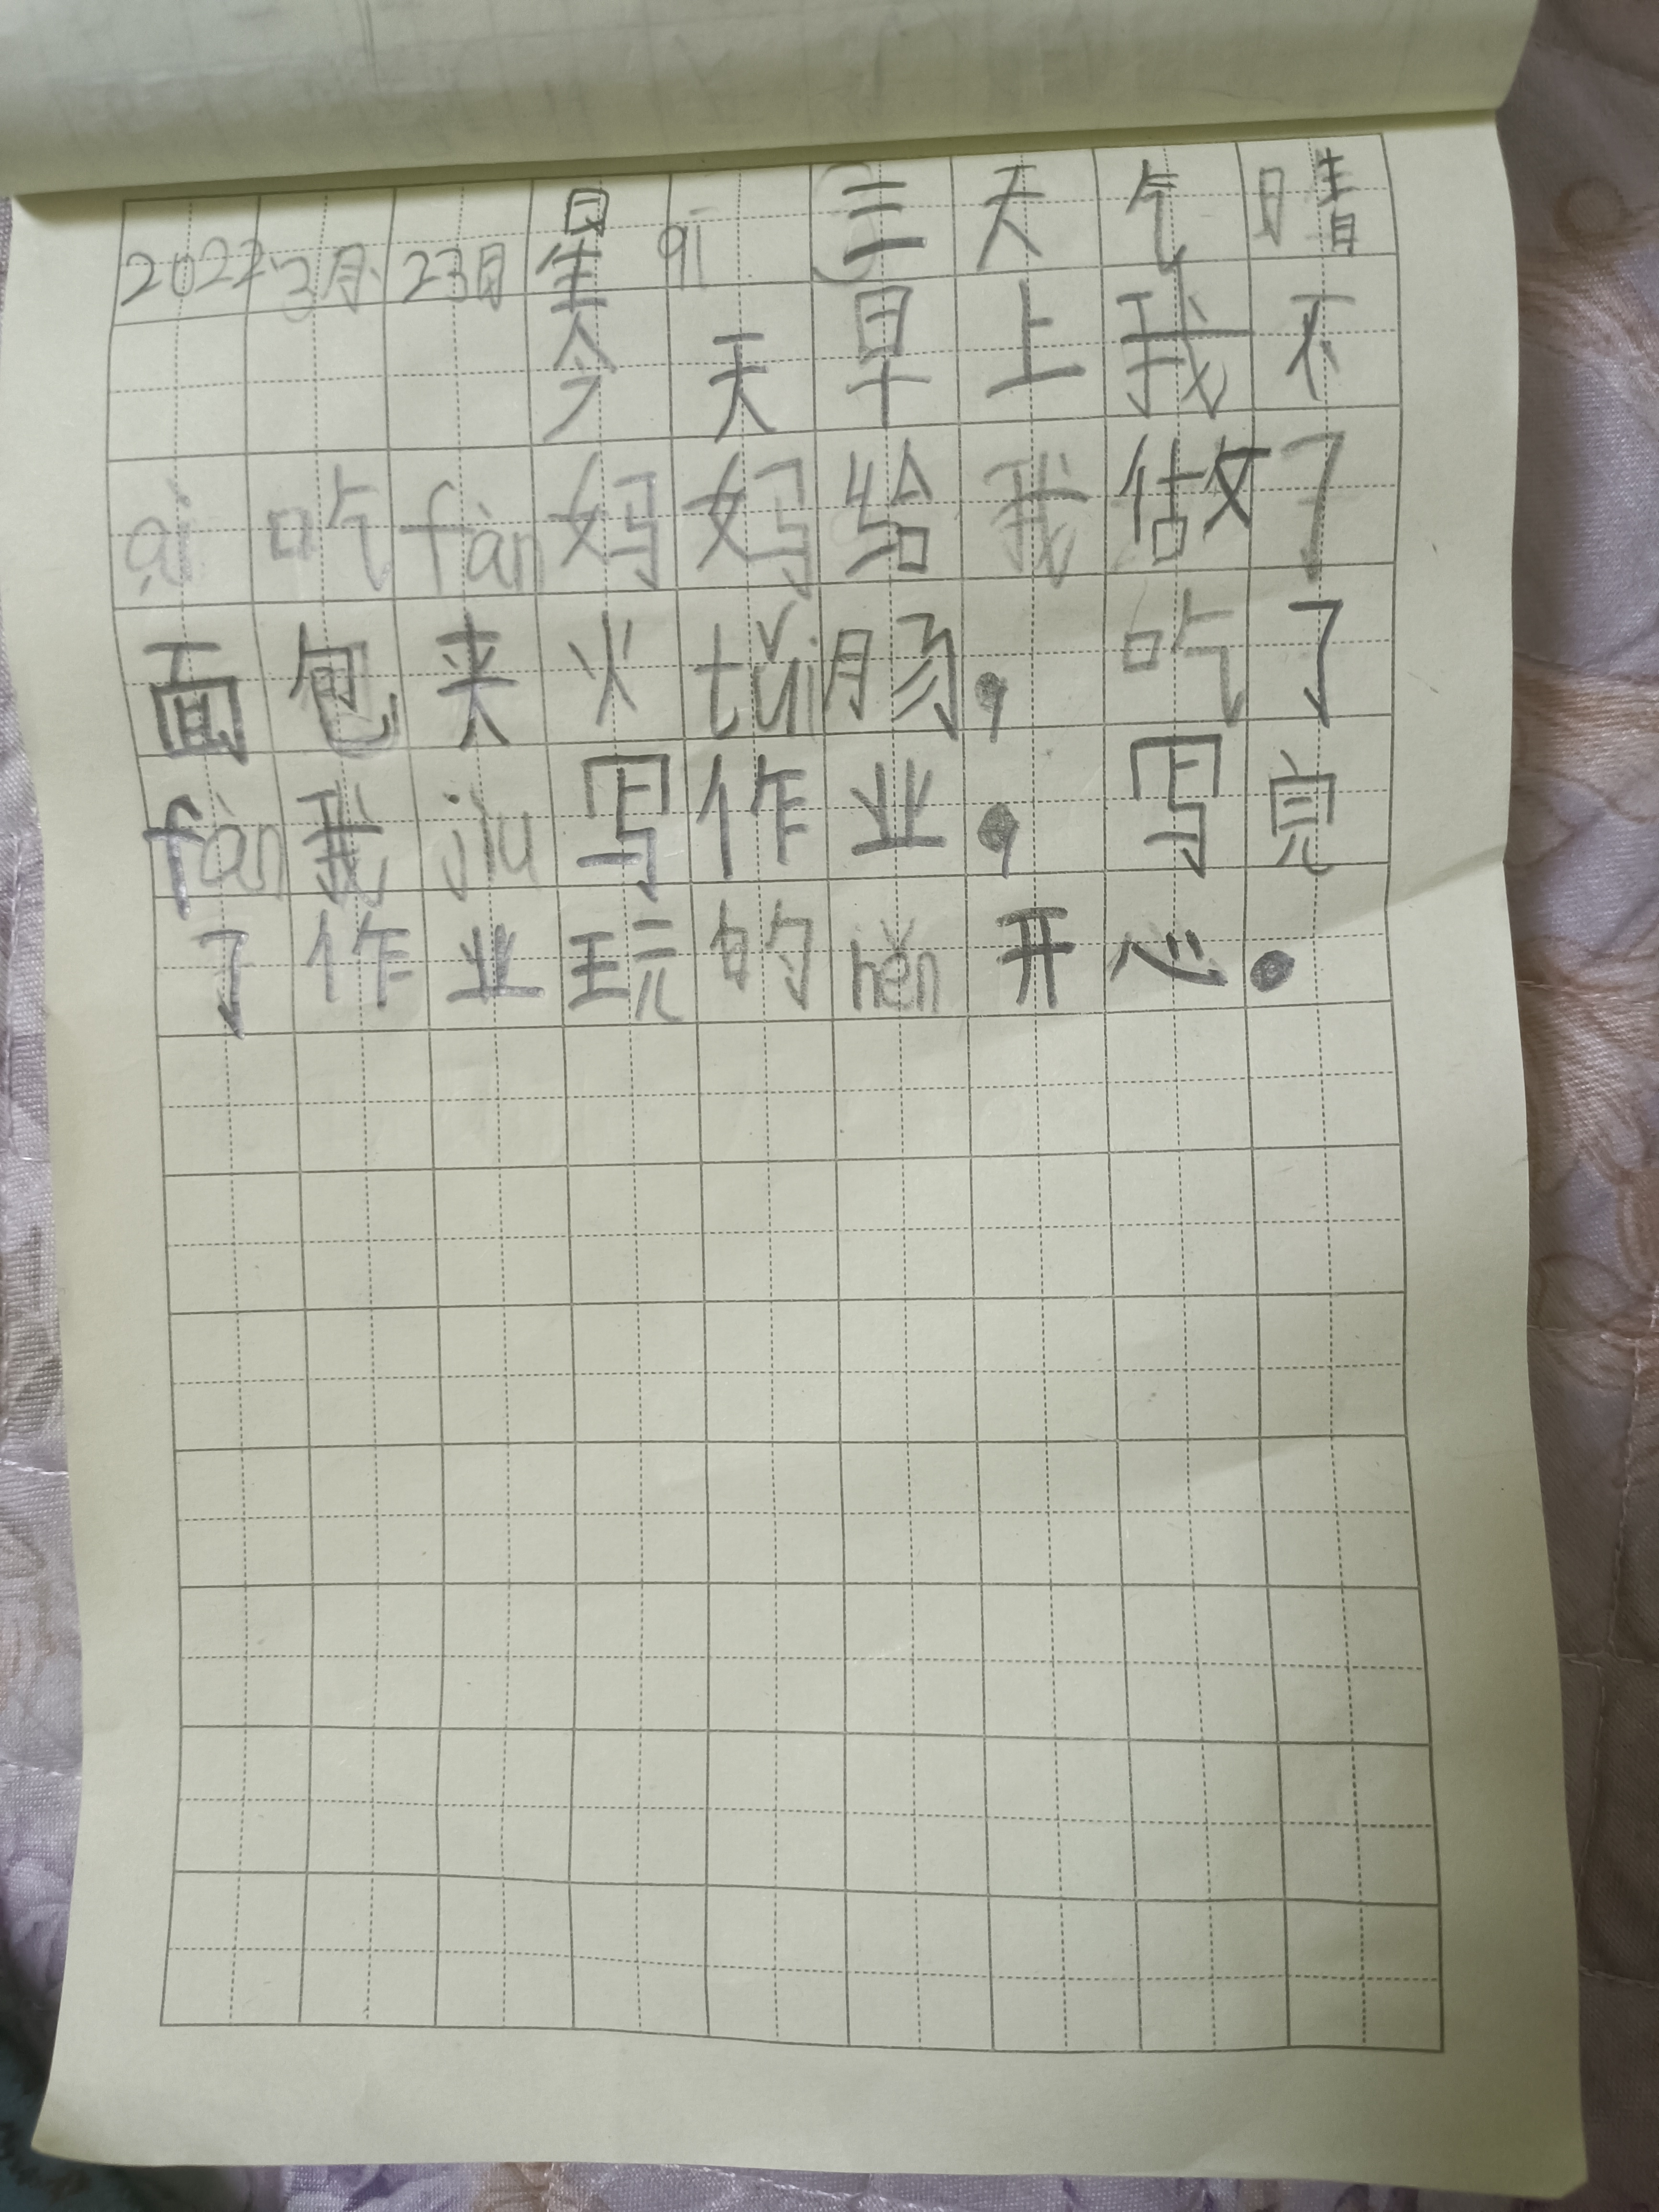 2022 3月 23日 星 qī 三 天气 晴
今天早上我不
ài 吃 fàn 妈妈给我做了
面包夹火 tuǐ 肠，吃了
fàn 我 jiu 写作业，写完
了作业玩的 hěn 开心.